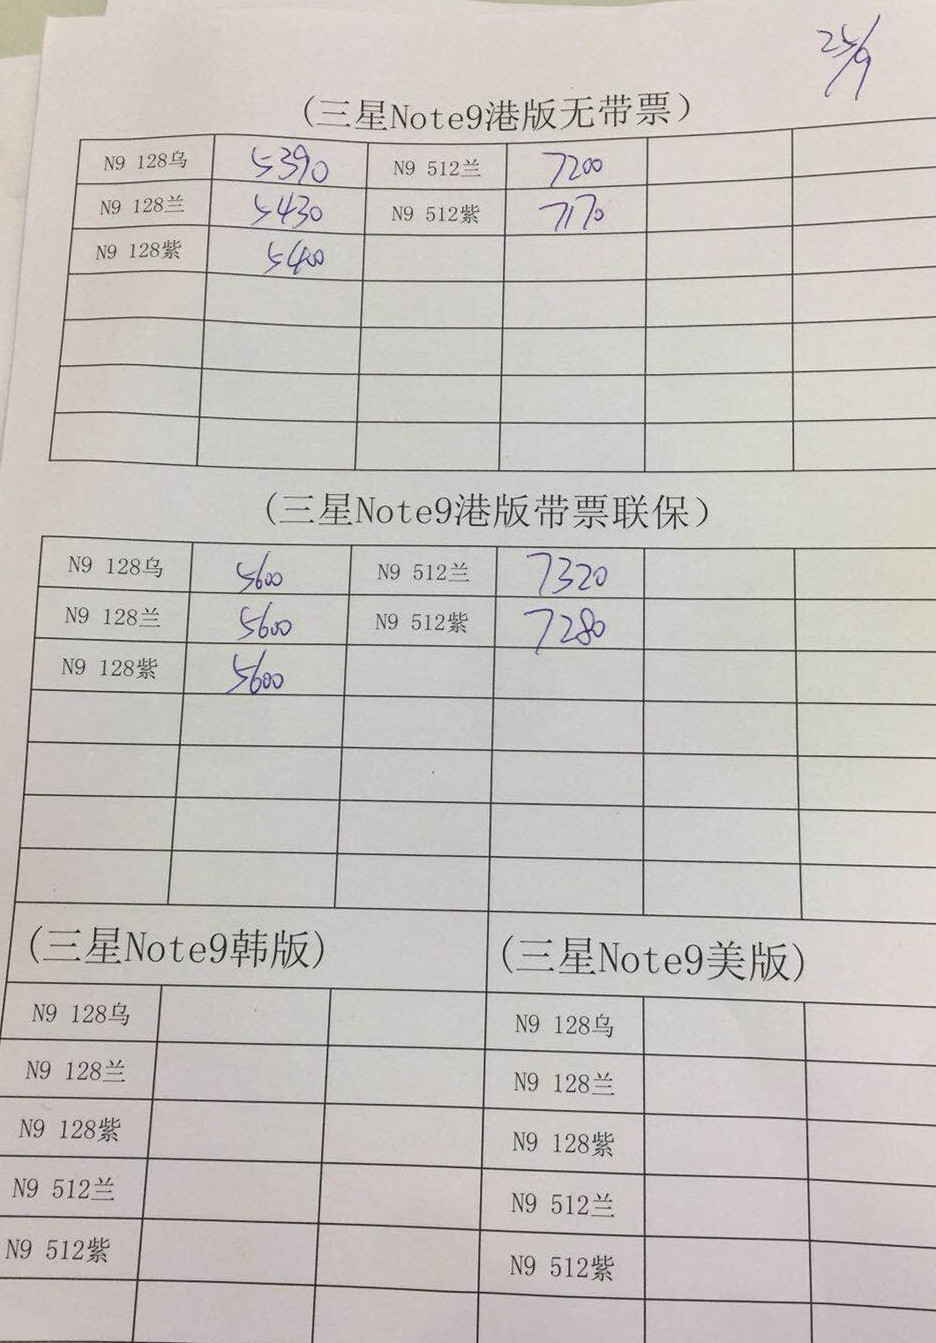 25/9
(三星Note9港版无带票)
N9 128乌 5390 N9 512兰 7200
N9 128兰 5430 N9 512紫 7170
N9 128紫 5400
(三星Note9港版带票联保)
N9 128乌 5600 N9 512兰 7320
N9 128兰 5600 N9 512紫 7280
N9 128紫 5600
(三星Note9韩版) (三星Note9美版)
N9 128乌 N9 128乌
N9 128兰 N9 128兰
N9 128紫 N9 128紫
N9 512兰 N9 512兰
N9 512紫 N9 512紫